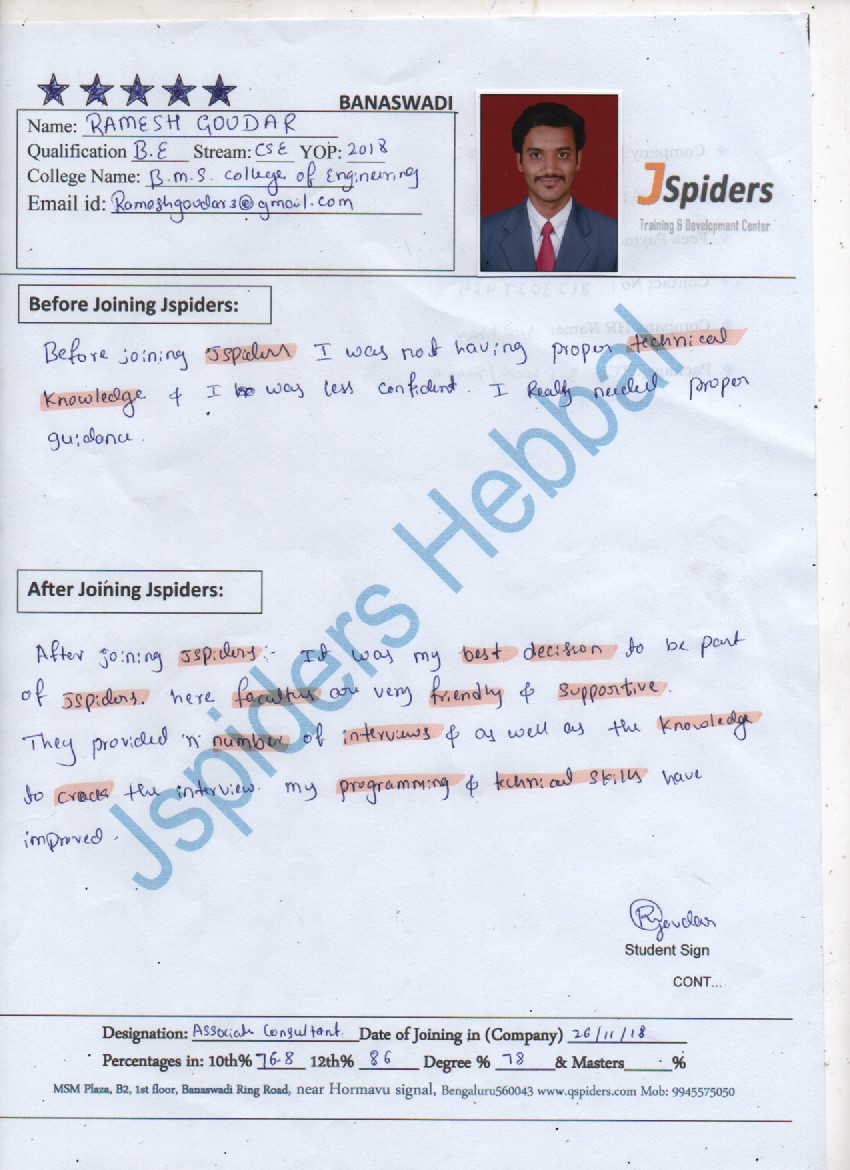 BANASWADI
Name: RAMESH GOUDAR
Qualification B.E Stream: CSE YOP: 2018
College Name: B.M.S. college of Engineering
Email id: Rameshgoudar3@gmail.com
JSpiders
Training & Development Center
Before Joining Jspiders:
Before joining JSpiders I was not having proper technical
knowledge & I was less confident. I Really needed proper
guidance.
Jspiders Hebbal
After Joining Jspiders:
After joining JSpiders:- It was my best decision to be part
of JSpiders. here faculties are very friendly & supportive.
They provided 'n' number of interviews & as well as the knowledge
to crack the interview. my programming & technical skills have
improved.
RGoudar
Student Sign
CONT...
Designation: Associate Consultant Date of Joining in (Company) 26/11/18
Percentages in: 10th% 76.8 12th% 86 Degree % 78 & Masters %
MSM Plaza, B2, 1st floor, Banaswadi Ring Road, near Hormavu signal, Bengaluru560043 www.qspiders.com Mob: 9945575050